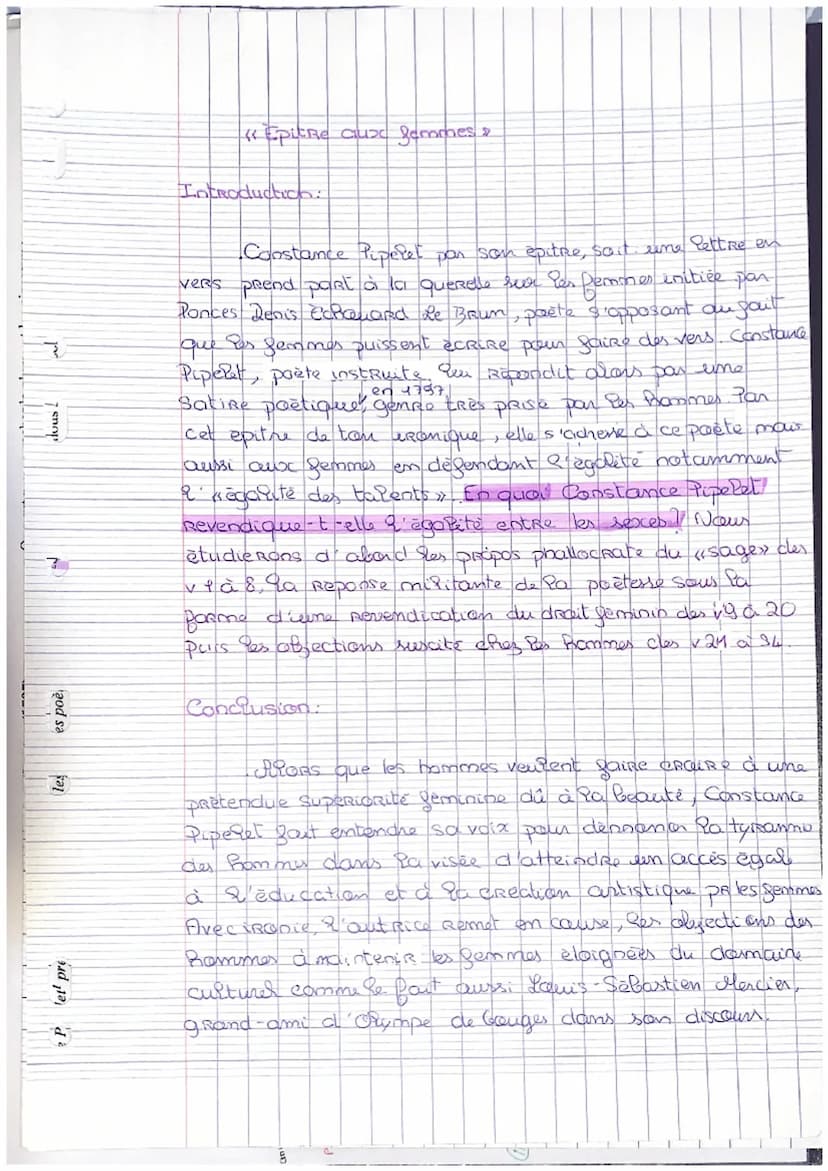 « Épitre aux femmes »
Introduction:
Constance Pipelet par son épitre, soit une lettre en
vers prend part à la querelle sur les femmes initiée par
Ponces Denis Echouard Le Brun, poète s'opposant au fait
que les femmes puissent écrire pour faire des vers. Constance
Pipelet, poète instruite, lui répondit alors par une
en 1797
satire poétique, genre très prisé par les hommes. Par
cet epitre de ton ironique, elle s'acheve à ce poète mais
aussi aux femmes en défendant l'égalité notamment
l' « égalité des talents ». En quoi Constance Pipelet
revendique-t-elle l'égalité entre les sexes? Nous
étudierons d'abord les propos phallocrate du « sage » des
v 1 à 8, la reponse militante de la poétesse sous la
forme d'une revendication du droit féminin des v 9 à 20
puis les objections suscité chez les hommes des v 21 à 34.
Conclusion:
Alors que les hommes veulent faire croire à une
prétendue supériorité féminine dû à la beauté, Constance
Pipelet fait entendre sa voix pour dénoncer la tyrannie
des hommes dans la visée d'atteindre un accès égal
à l'éducation et à la création artistique pr les femmes
Avec ironie, l'autrice remet en cause, les objections des
hommes à maintenir les femmes éloignées du domaine
culturel comme le fait aussi Louis-Sébastien Mercier,
grand-ami d'Olympe de Gouges dans son discours.
dous
3
es poè
les
let pré
e P.